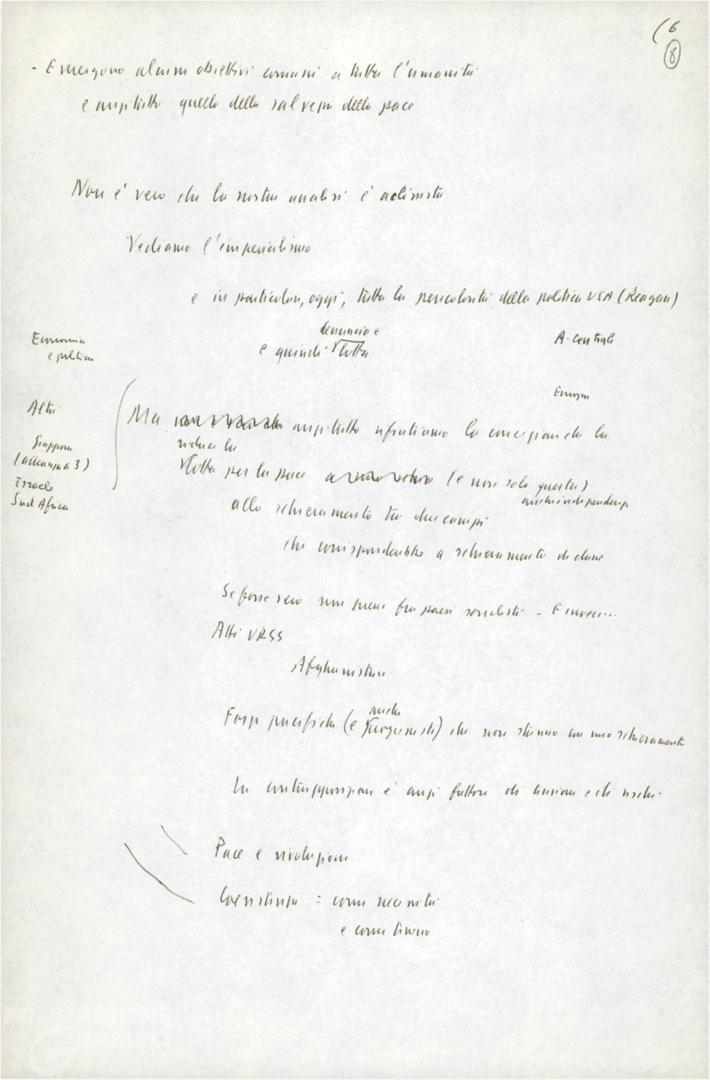 (6
8
- Emergono alcuni obiettivi comuni a tutta l'umanità
e anzitutto quello della salvezza della pace
Non è vero che la nostra analisi è
Vediamo l'imperialismo
e in particolare, oggi, tutta la pericolosità della politica USA (Reagan)
denuncia e
e quindi lotta
A. centrale
Economia
e politica
Europa
Altri
Ma anzitutto rifiutiamo la concezione che la
riduce la
Giappone
lotta per la pace (e non solo questa)
(allegna 3)
anche indipendenza
Israele
Sud Africa
allo schieramento tra due campi
che corrisponderebbe a schieramento di classe
Se fosse vero non guerre fra paesi socialisti - E invece...
Atti URSS
Afghanistan
anche
Forze pacifiche (e progressiste) che non stanno in uno schieramento
La contrapposizione è anzi fattore di tensione e di rischi.
Pace e rivoluzione
Coesistenza = come necessità
e come terreno